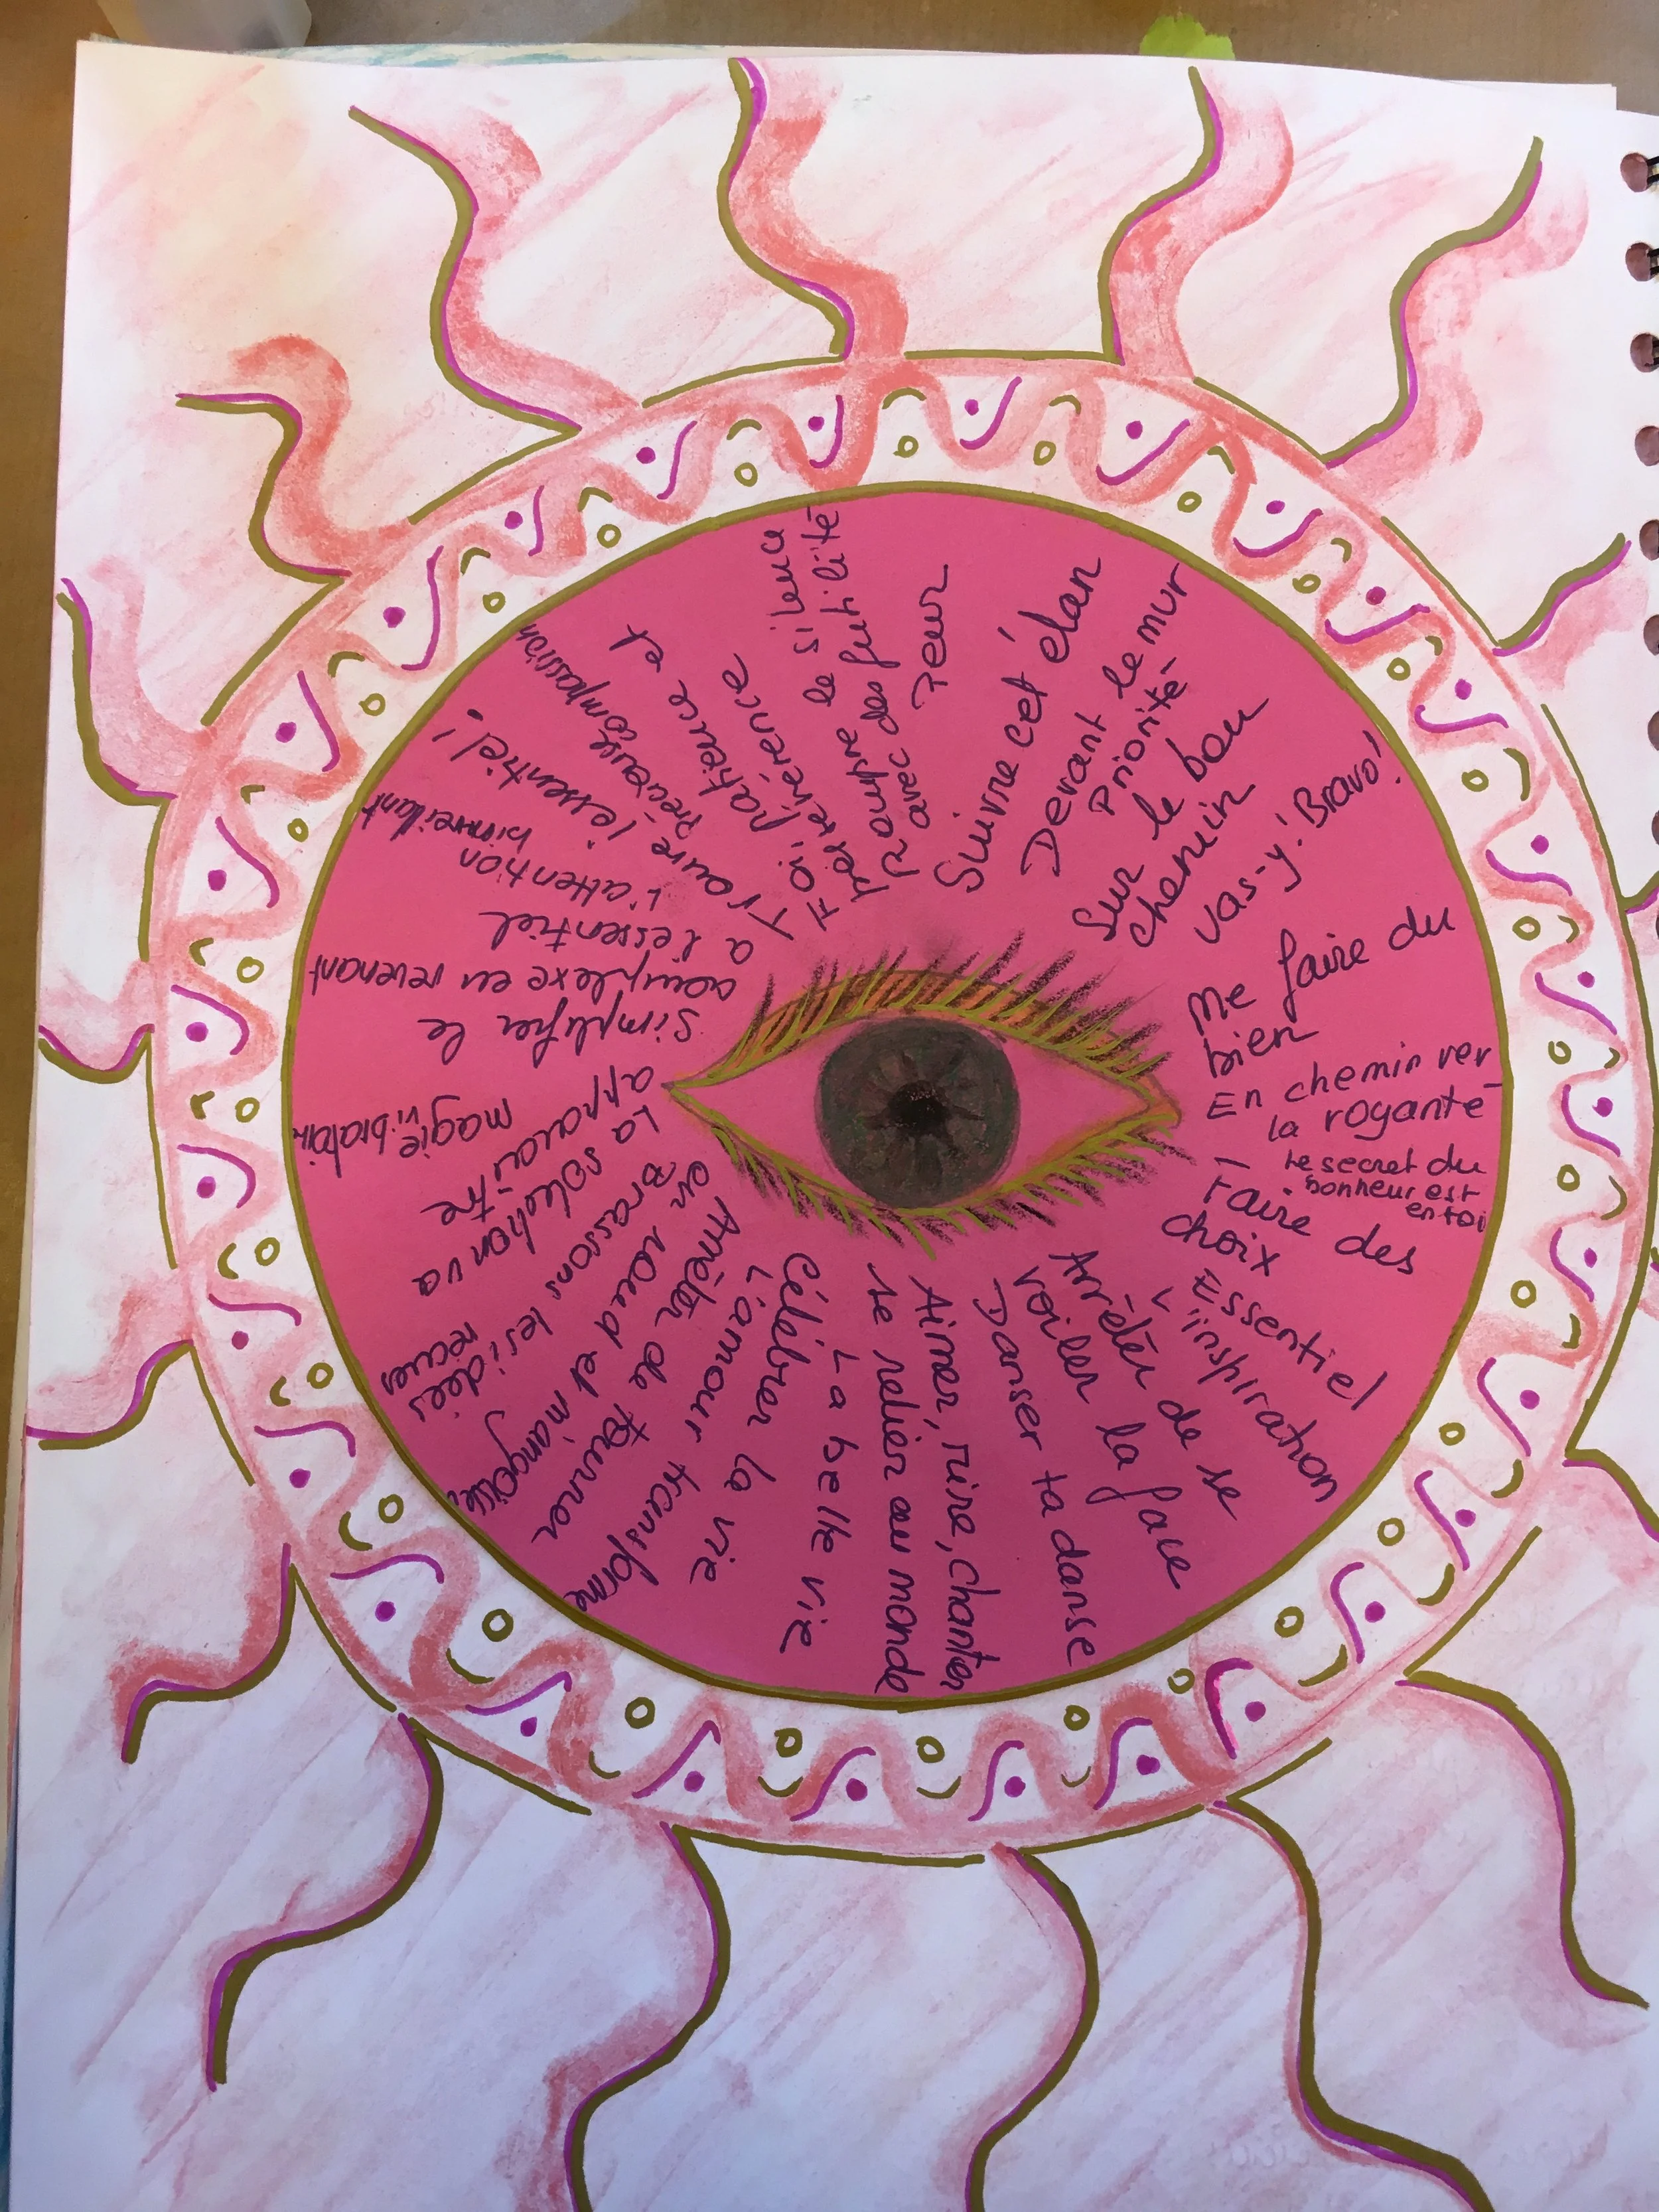 Suivre cet élan
Devant le mur
Priorité
Sur le bon
chemin
vas-y! Bravo!
Me faire du
bien
En chemin ver
la royauté
Le secret du
bonheur est
en toi
Faire des
choix
Essentiel
L'inspiration
Arrêter de se
voiler la face
Danser ta danse
Aimer, rire, chanter
se relier au monde
La belle vie
Célébrer la vie
L'amour transforme
Arrêter de tourner
en rond et
Brassons les idées
reçues
La solution va
apparaître
magie
Simplifier le
complexe en revenant
à l'essentiel
L'attention
bienveillant
l'essentiel!
Précieuse compassion
Foi, patience et
persévérence
Rompre le silence
avec des futilité
Peur